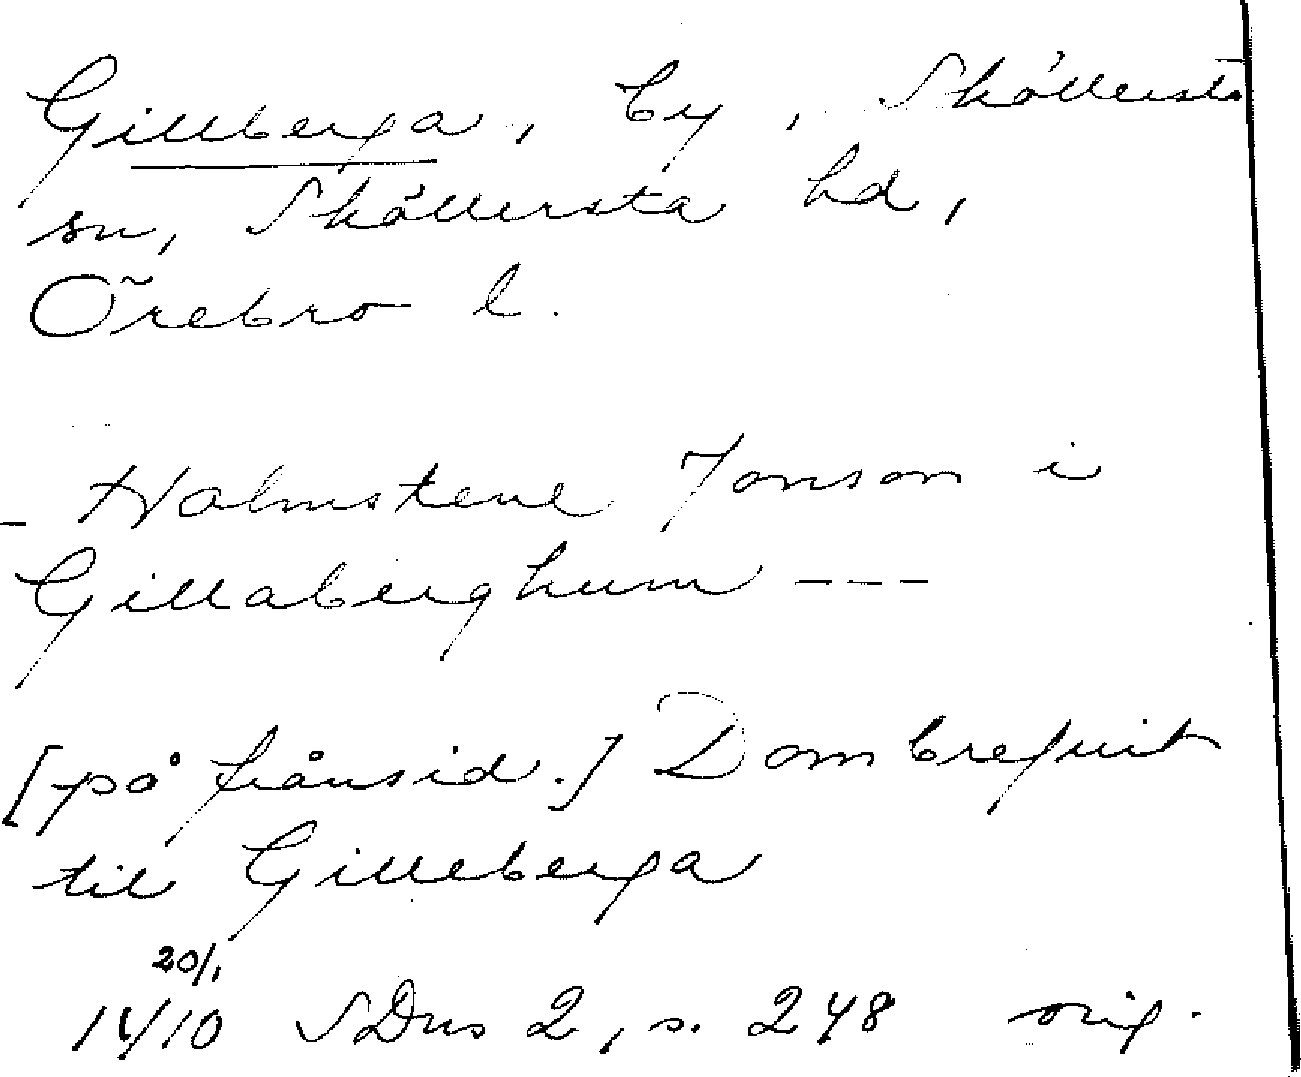 Gillberga, by, Sköllersta
sn, Sköllersta hd,
Örebro l.
- Holmstene Jonson i
Gillaberghum ---
[på frånsid.] Dombrefuit
til Gilleberga
20/1
1410 SDns 2, s. 248 orig.